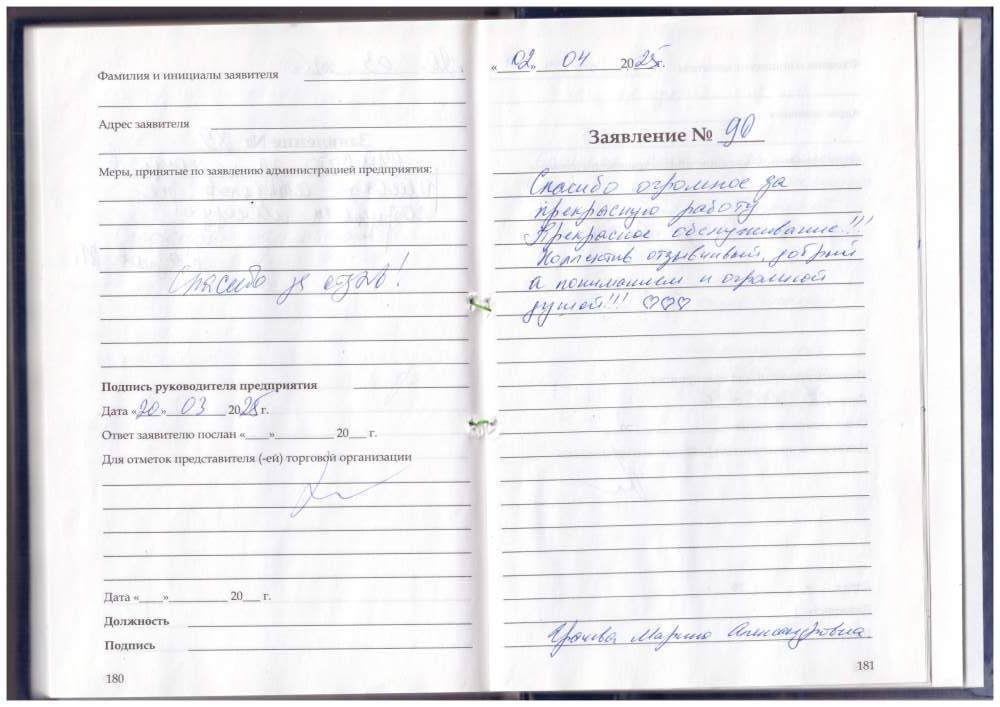 Фамилия и инициалы заявителя
Адрес заявителя
Меры, принятые по заявлению администрацией предприятия:
Спасибо за отзыв!
Подпись руководителя предприятия
Дата «20» 03 2025 г.
Ответ заявителю послан «___»_________ 20___ г.
Для отметок представителя (-ей) торговой организации
Дата «___»_________ 20___ г.
Должность
Подпись
180
«02» 04 2025г.
Заявление № 90
Спасибо огромное за
прекрасную работу
Прекрасное обслуживание!!!
Коллектив отзывчивый, добрый
а пониманием и огромной
душой!!! ♡♡♡
Марина Александровна
181